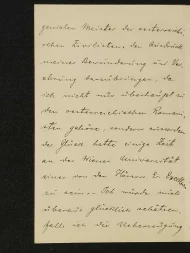 genialen Meister der österreichi-
schen Zivilisten, den Ausdruck
meiner Bewunderung und Ver-
ehrung darzubringen, da
ich nicht nur überhaupt zu
den österreichischen Romani-
sten gehöre, sondern ausserdem
das Glück hatte einige Zeit
an der Wiener Universität
einer von den Hörern Ew.
zu sein. - Ich würde mich
überaus glücklich schätzen,
falls ich die Überzeugung